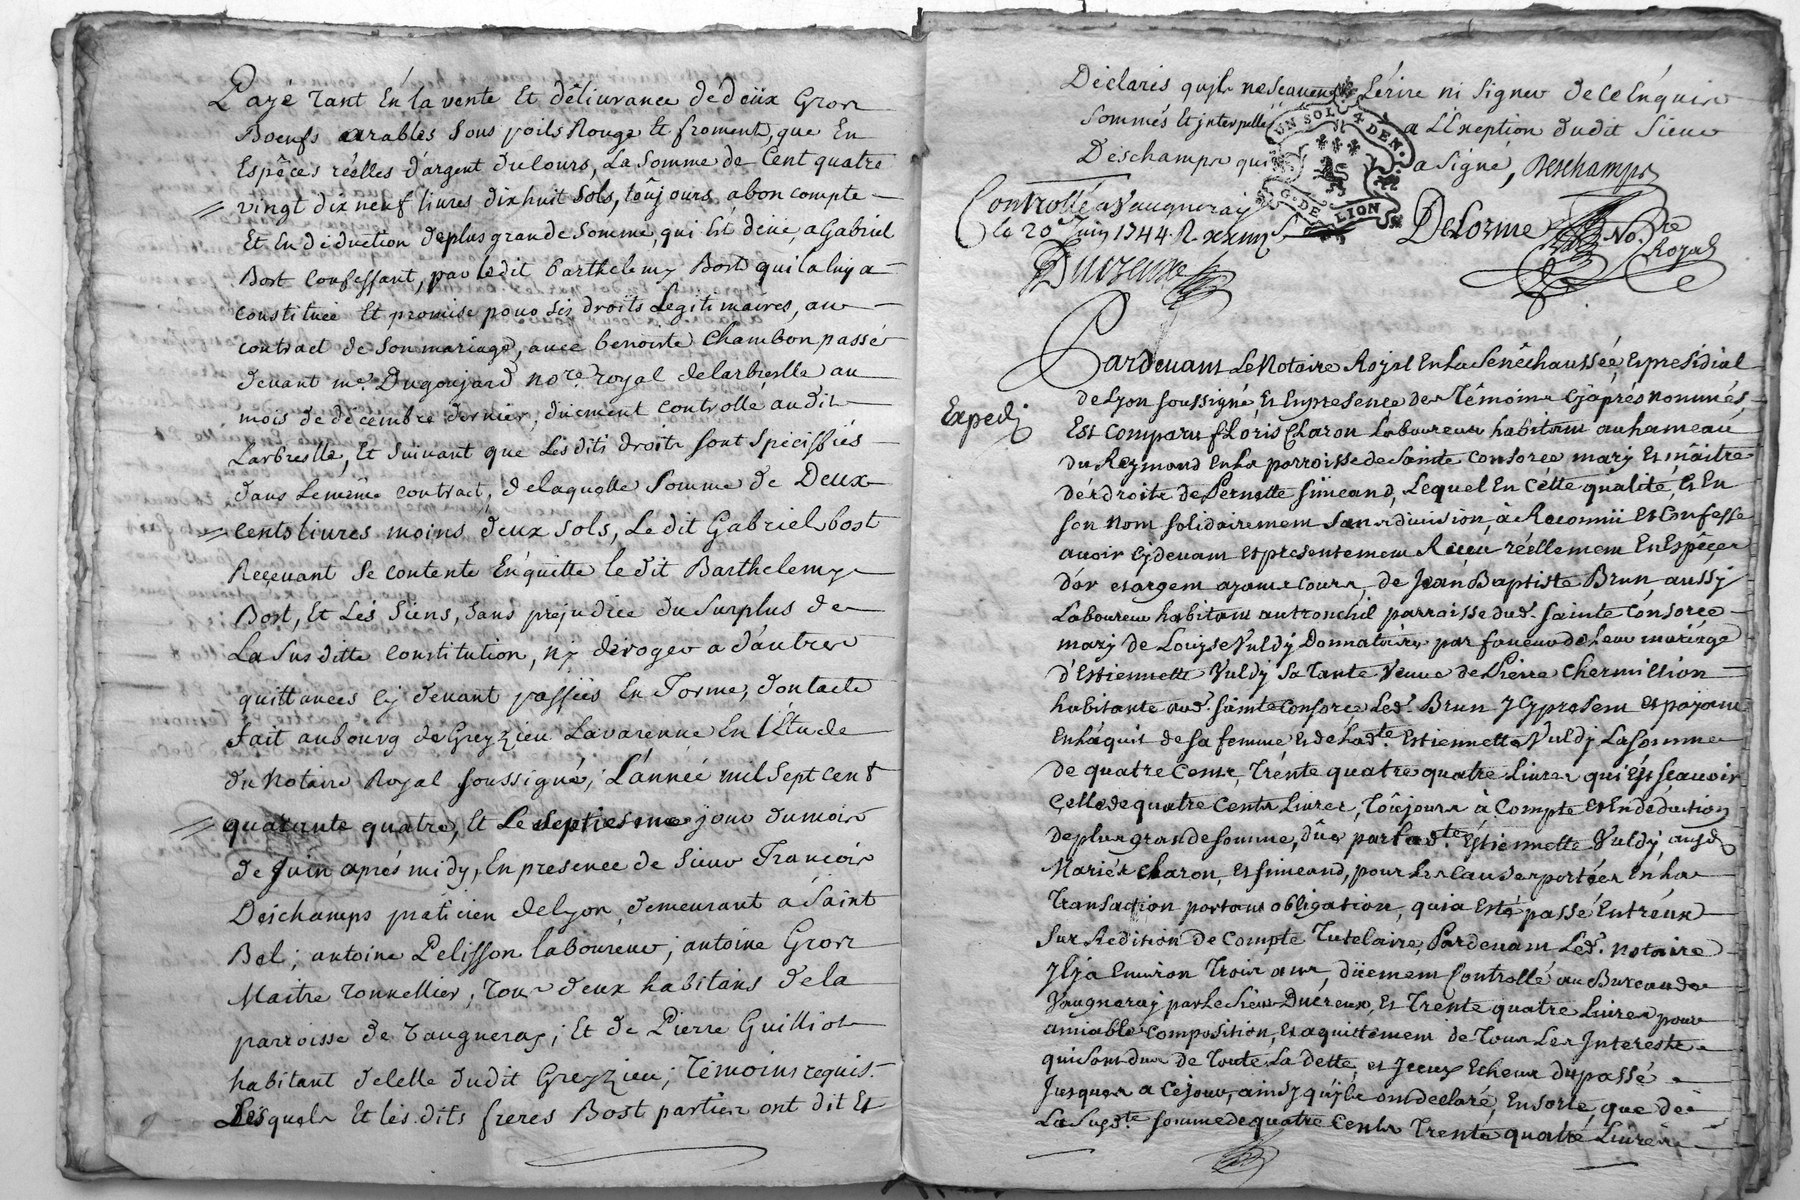 Payé tant En la vente Et dêliurance de deüx Gros
Boeufs arables Sous poils Rouge Et froment, que En
Espêces réélles d'argent du Cours, La Somme de Cent quatre
vingt dix neuf liures dixhuit Sols, toûjours a bon compte
Et En déduction de plus grande Somme, qui Est deüe, a Gabriel
Bost Confessant, par ledit barthelemy Bost qui la luy a
constituée Et promise pour Ses droits Legitimaires, au
contract de Son mariage, auec benoiste Chambon passé
deuant me. Dugoujard nore. royal de larbreslle au
mois de decembre dernier, düement controllé audit
Larbreslle, Et Suiuant que Lesdits droits Sont Speciffiés
dans Lemême contract, de laquelle Somme de Deux
Cents liures moins deux Sols, Le dit Gabriel bost
Reçeuant Se contente En quitte le dit Barthelemy
Bost, Et Les Siens, Sans prejudice du Surplus de
La Susditte Constitution, ny déroger a d'autres
quittances Cy deuant passées En Forme, dont acte
Fait au bourg de Greyzieu Lauarenne En l'Etude
du Notaire Royal Soussigné, L'année mil Sept Cent
quarante quatre, Et Le Septiesme jour du mois
de Juin aprés midy, En presence de Sieur François
Deschamps praticien de Lyon, demeurant a Saint
Bel; antoine Pelisson laboureur; antoine Gros
Maitre Tonnellier, Tous deux habitans de la
parroisse de Vaugneray; Et de Pierre Guilliot
habitant de Celle dudit Greyzieu; Témoins requis.
Lesquels Et les dits freres Bost parties ont dit Et
Déclarés qu'ils ne Sçauent Ecrire ni Signer de Ce Enquis
Sommés Et jnterpellés a L'Exeption dudit Sieur
Deschamps qui a Signé, Deschamps
UN SOL 4 DEN.
G. DE LION
Controllé a Vaugneray
le 20e Juin 1744. R.
DeLorme Nore
Royal
Ducreux
Pardeuant Le Notaire Royal En La Senêchaussée, Et presidial
Expedi
de Lyon soussigné, Et En presence des Têmoins Cy aprés nommés,
Est Comparu fLoris Charon Laboureur habitant au hameau
du Reymond En La parroisse de Sainte Consorce mary Et maître
des droits de Pernette Simeand, Lequel En Cétte qualité, Et En
son nom solidairement Sans diuision, à Reconnü Et Confessé
auoir Cy deuant Et presentement Reçeu réellement En Espêces
d'or Et argent ayant Cours, de Jean Baptiste Brun, aussy
Laboureur habitant au tronchil parroisse dud. Sainte Consorce
mary de Louyse Vuldy Donnataire par faueur de Leur mariage
d'Estiennette Vuldy Sa Tante Veuue de Pierre Chermillion
habitante aud. Sainte Consorce Led. Brun Jcy present Et payant
En Láquit de Sa femme Et de Ladte. Estiennette Vuldy La Somme
de quatre Cents, Trénte quatre quatre Liures qui Est Sçauoir
Celle de quatre Cents Liures, Toûjours à Compte Et En déduction
de plus grande Somme, dûe par Ladte. Estiennette Vuldy ausd
Mariés Charon, Et Simeand, pour Les Causes portées En La
Transaction portant obligation, qui a Esté passé Entréux
Sur Redition de Compte Tutelaire, Pardeuant Led. Notaire
Jl y a Enuiron Trois ans, düement Controllé au Bureau de
Vaugneray par Le Sieur Ducreux, Et Trente quatre Liures pour
amiable Composition, Et aquittement de Tous Les Jnterests
qui Sont dus de Toute La dette, et Jceux Echeus du passé
Jusques a Cejour, ainsy qu'ils ont declaré, En Sorte, que de
La Susdte. Somme de quatre Cents Trente quatre Liures